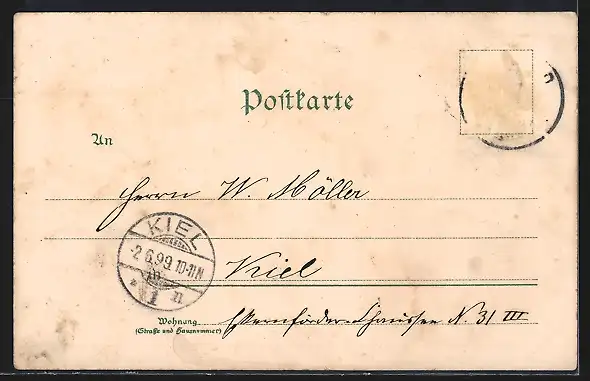 Postkarte
An
Herrn W. Möller
KIEL
2.6.99. 10-11N
Kiel
Wohnung
(Straße und Hausnummer)
Eckernförder-Chaussee N. 31 III